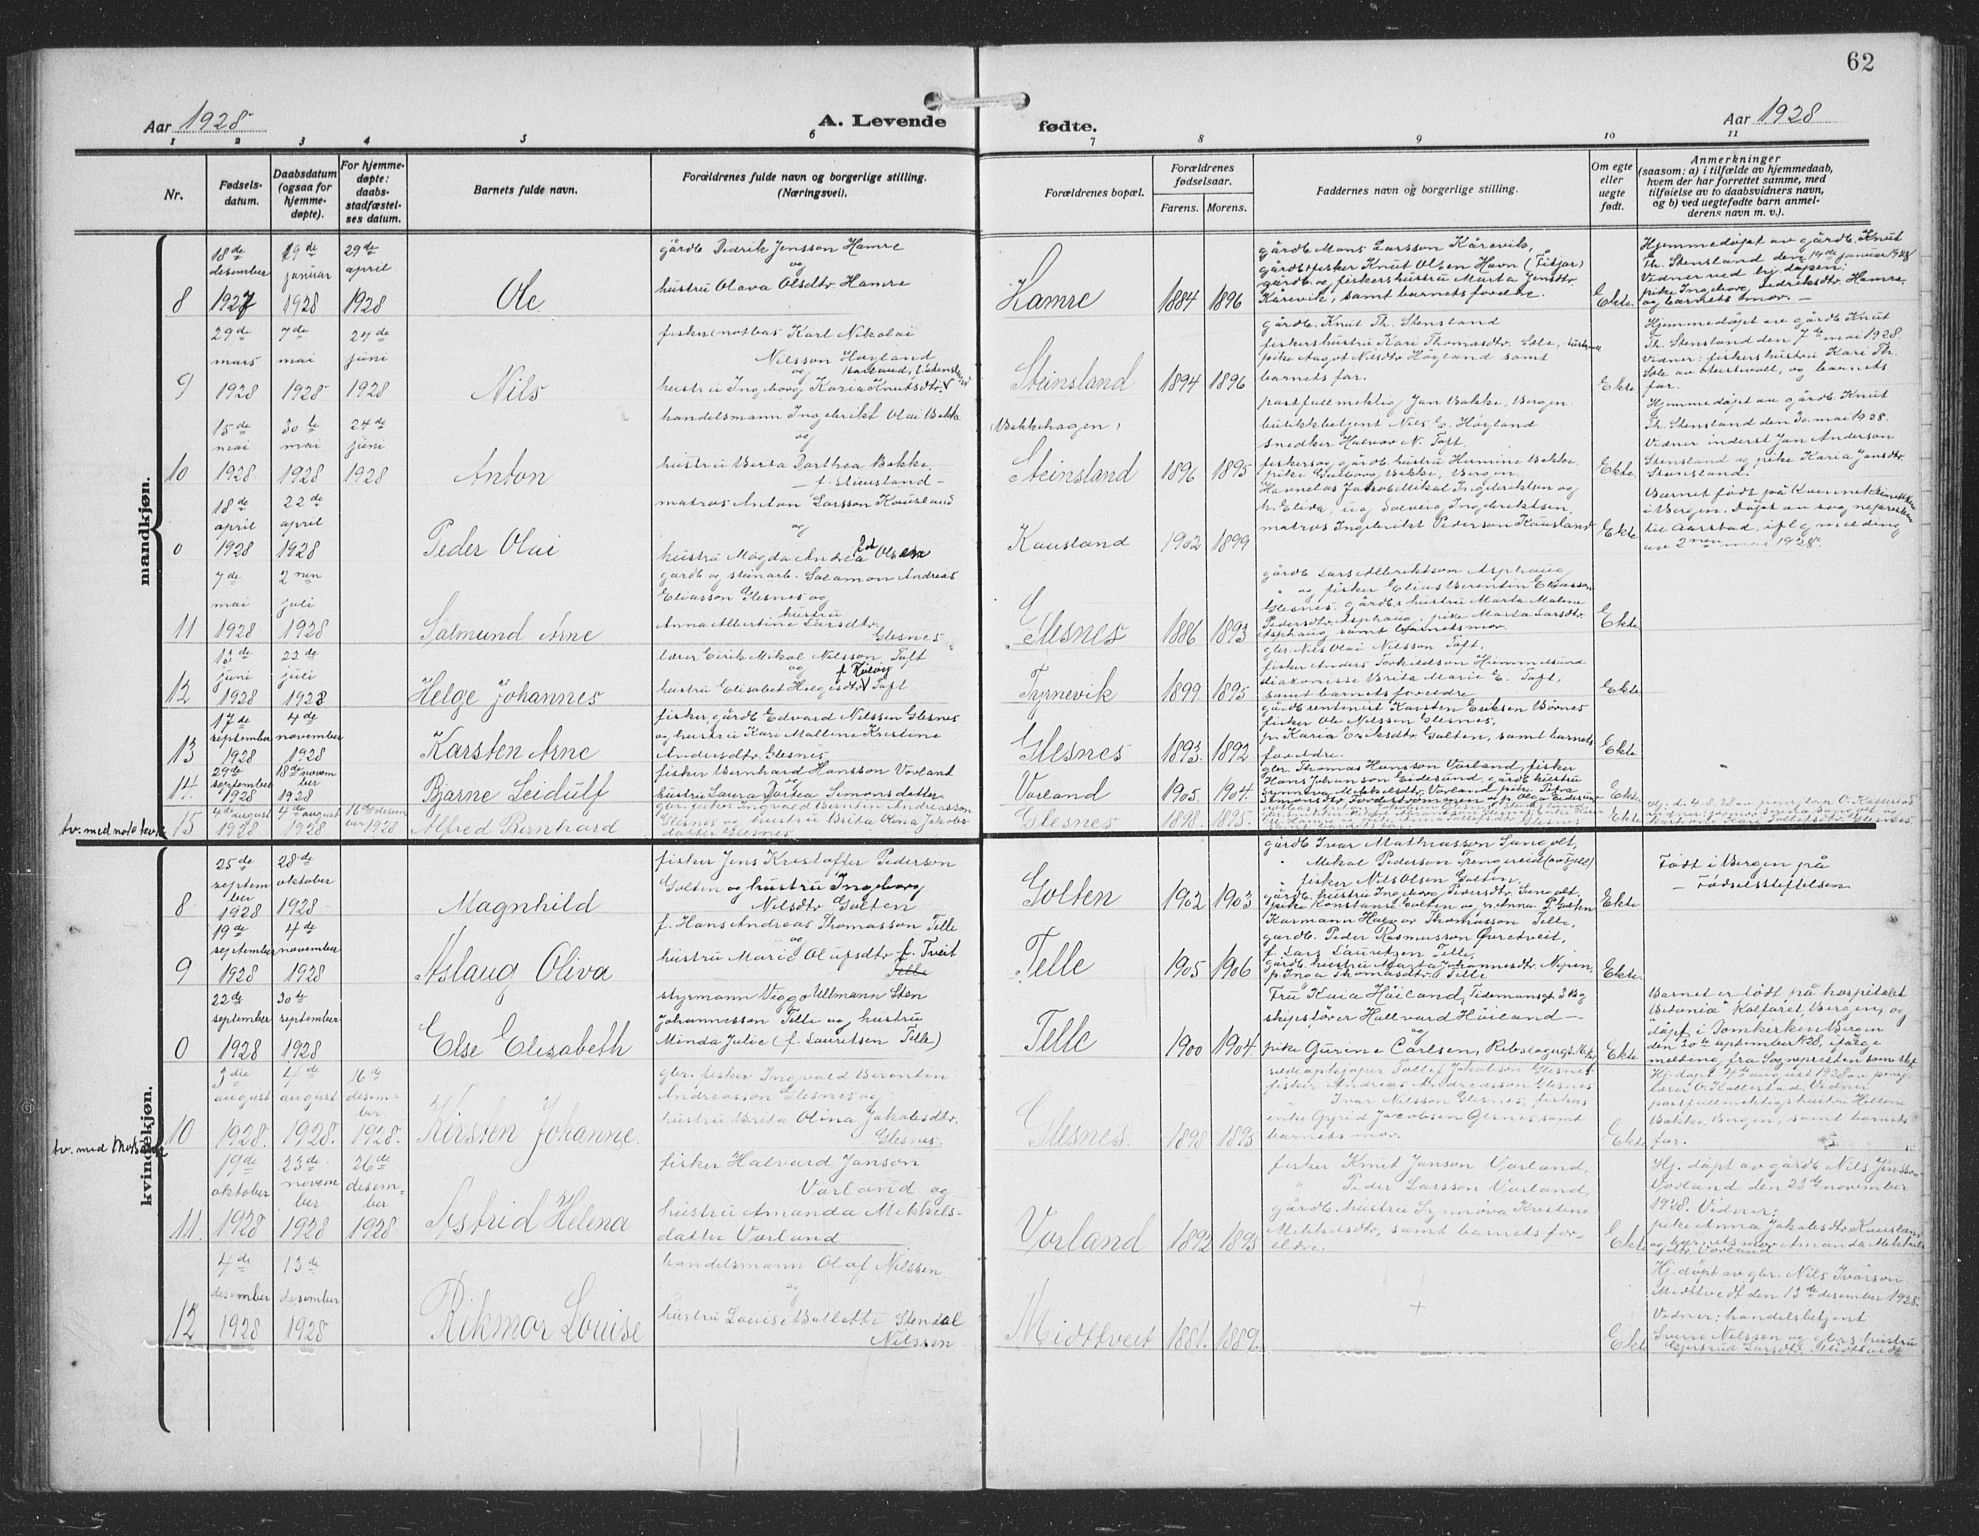 62
Aar 1928
A. Levende
fødte.
Aar 1928
1 2 3 4 5 6 7 8 9 10 11
Nr.
Fødsels-
datum.
Daabsdatum
(ogsaa for
hjemme-
døpte).
For hjemme-
døpte:
daabs-
stadfæstel-
ses datum.
Barnets fulde navn.
Forældrenes fulde navn og borgerlige stilling.
(Næringsvei).
Forældrenes bopæl.
Forældrenes
fødselsaar.
Farens. Morens.
Faddernes navn og borgerlige stilling.
Om egte
eller
uegte
født.
Anmerkninger
(saasom: a) i tilfælde av hjemmedaab,
hvem der har forrettet samme, med
tilføielse av to daabsvidners navn,
og b) ved uegtefødte barn anmel-
derens navn m. v.).
mandkjøn.
8
18de
desember
1927
19de
januar
1928
29de
april
1928
Ole
gårdb Didrik Jensson Hamre
og
hustru Olava Olsdtr Hamre
Hamre
1884 1896
gårdb Mons Larsson Kårevik,
gårdb. fisker Knut Olsen Havn (Fitjar)
gårdb og fiskers hustru Marta Jensdtr
Kårevik, samt barnets foreldre.
Ekte
Hjemmedøpt av gårdb. Knut
Th. Stensland den 19de januar 1928
Vidner ved hj. dåpen:
pike Ingeborg Didriksdtr Hamre
og barnets mor. —
9
29de
mars
1928
7de
mai
1928
24de
juni
1928
Nils
fisker (notbas Karl Nikolai
Nilsson Høyland
og
hustru Ingeborg Karia Knutsdtr
Steinsland
1894 1896
gårdb. Knut Th. Stensland
fiskershustru Kari Thomasdtr. Sole,
pike Aagot Nilsdtr Høyland samt
barnets far.
Ekte
Hjemmedøpt av gårdb Knut
Th. Stensland den 7de mai 1928.
Vidner: fiskers hustru Kari Th.
Sole av Austevoll, og barnets
far.
10
15de
mai
1928
30te
mai
1928
24de
juni
1928
Anton
handelsmann Ingebrikt Olai Bakke
og
hustru Berta Dorthea Bakke,
— f. Steinsland —
(Bakkehagen)
Steinsland
1896 1895
postfullmektig Jan Bakke, Bergen
butikkbetjent Nils G. Høyland
snedker Halvor N. Toft,
fiskers og gårdb. hustru Hermine Bakke
Ekte
Hjemmedøpt av gårdb. Knut
Th. Stensland den 30 mai 1928.
Vidner inderst Jan Anderson
Stensland og pike Karia Jansdtr.
Stensland.
0
18de
april
1928
22de
april
1928
Peder Olai
matros Anton Larsson Kausland
og
hustru Magda Andrea f. Olsen
Kausland
1902 1899
matros Ingebrikt Pederson Kausland
Ekte
Barnet født på Kvinneklinikken
i Bergen. Døpt av sognepresten
til Aarstad, ifl. melding
av 2nen mai 1928.
11
7de
mai
1928
2nen
juli
1928
Salmund Arne
gårdb og steinarb. Salamon Andreas
Eliasson Glesnes og
hustru
Anna Albertine Larsdtr
Glesnes
Glesnes
1886 1893
gårdb Lars Albriktson Asphaug
og fisker Elias Berentin Eliasson
Glesnes, gårdb. hustru Marta Malene
Pedersdtr. Asphaug, pike Marta Larsdtr
Asphaug samt barnets mor.
Ekte
12
13de
juni
1928
22de
juli
1928
Helge Johannes
lærer Eirik Mikal Nilsson Toft
og
hustru Elisabet Helgesdtr Toft
Tyrnevik
1899 1895
gbr. Nils Olai Nilsson Toft,
fisker Anders Torkildson Hummelsund
diakonisse Brita Marie E. Toft,
samt barnets foreldre
Ekte
13
17de
september
1928
4de
november
1928
Karsten Arne
fisker, gårdb Edvard Nilssen Glesnes
og hustru Kari Maltene Kristine
Andersdtr. Glesnes
Glesnes
1893 1892
gårdb rentenist Karsten Eriksen Børnes
fisker Ole Nilssen Glesnes,
p. Karia Eriksdtr Golten, samt barnets
foreldre.
Ekte
14
29de
september
1928
18de novem
ber
1928
Bjarne Leidulf
fisker Bernhard Hansson Vorland
og
hustru Laura Dortea Simonsdatter
Vorland
1905 1904
gbr. Thomas Hansson Vorland, fisker
Hans Johanson Eidesund, gårdb hustru
Synneva Mikkelsdtr. Vorland pike Petra
Ekte
tv. med no 10 kvk
15
4de august
1928
4de august
1928
16de desem
ber 1928
Alfred Bernhard
gbr. fisker Ingvald Berntin Andreasson
Glesnes og hustru Brita Olina Jakobs-
datter Glesnes
Glesnes
1898 1895
Ekte
Hj.d. 4.8.28 av pensj. lærer V. Kallestad
kvindekjøn.
8
25de
septem
ber
1928
28de
oktober
1928
Magnhild
fisker Jens Kristoffer Pederson
Golten og hustru Ingeborg
Nilsdtr Golten
Golten
1902 1903
gårdb Ivar Mathiasson Sangolt,
" Mikal Pederson Trengereid (av Fjell)
" fisker Nils Olsen Golten,
gårdb. hustru Ingeborg Pedersdtr Sangolt,
pike Konstanse Golten og p. Anna P. Golten
Ekte
Født i Bergen på
— Fødselsstiftelsen
9
19de
september
1928
4de
november
1928
Aslaug Oliva
f. Hans Andreas Thomasson Telle
og
hustru Marie Olufsdtr f. Tveit
Telle
Telle
1905 1906
Kormann Halvor Thomasson Telle,
gårdb. Peder Rasmusson Øvretveit,
f. Lars Lauritzen Telle,
gårdb. hustru Marta Johannesdtr. Nipen,
p. Inga Thomasdtr. Telle
Ekte
0
22de
september
1928
30te
september
1928
Else Elisabeth
styrmann Viggo Ullmann Sten
Johannesson Telle og hustru
Minda Julie (f. Lauritsen Telle)
Telle
1900 1904
Fru Kaia Høiland, Tidemansgt 3 Bg
skipsfører Hallvard Høiland —
og
pike Gurine Carlsen,
Ekte
Barnet er født på hospitalet
Betania Kalfaret, Bergen, og
døpt i Domkirken Bergen
den 30te september 1928, ifølge
melding fra Sognepresten som st.
10
3die
august
1928.
4de
august
1928.
16de
desem-
ber
1928.
Kirsten Johanne.
gbr. fisker Ingvald Berentin
Andreasson Glesnes og
hustru Brita Olina Jakobsdtr.
Glesnes.
Glesnes.
1898 1895
fisker Andreas Andreasson Glesnes
" Ivar Nilsson Glesnes, fiskers
enke Gyrid Jacobsen Glesnes samt
barnets mor.
Ekte
Hj. døpt 4de august 1928 av pensj.
lærer V. Kallestad, Vidner
postfullmektigs hustru Hillene
Bakke, Bergen, samt barnets
far.
tv. med No 15 mk
11.
19de
oktober
1928
23de
novem
ber
1928
26de
desem-
ber
1928
Astrid Helena
fisker Halvard Janson
Vorland og
hustru Amanda Mikkels-
datter Vorland
Vorland
1892 1893
fisker Knut Janson Vorland,
" Peder Larsson Vorland,
gårdb. hustru Synnøva Kristine
Mikkelsdtr, samt barnets for-
eldre.
Ekte
Hj. døpt av gårdb Nils Jensson
Vorland den 23de november
1928. Vidner:
pike Anna Jakobsdtr Kausland
og barnets mor Amanda Mikkels-
dtr. Vorland
12
4de
desember
1928
13de
desember
1928
Rikmor Louise
handelsmann Olaf Nilssen
og
hustru Louise Bollette Stendal
Nilssen
Midttveit
1881. 1889.
+
Ekte
Hj. døpt av gbr. Nils Ivarson
Midttvedt den 13de desember 1928.
Vidner: handelsbetjent
Sverre Nilssen og gbrs. hustru
Gjertrud Larsdtr. Midttvedt